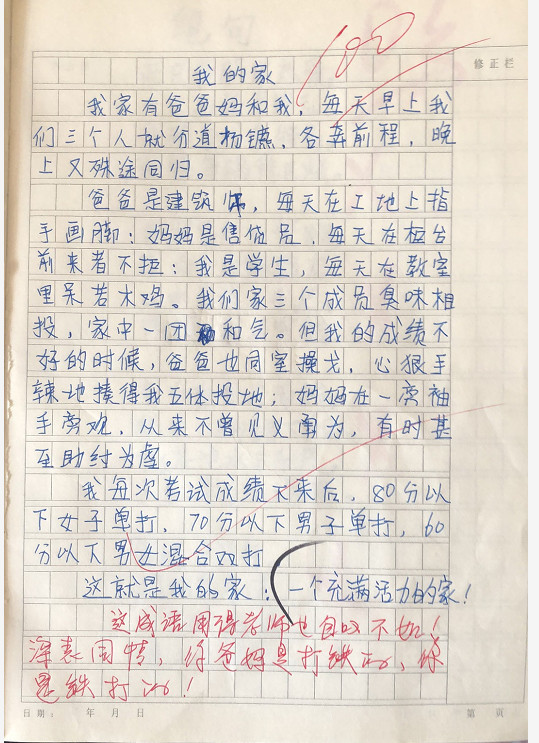 100
修正栏
我的家
我家有爸爸妈和我，每天早上我
们三个人就分道杨镳，各奔前程，晚
上又殊途同归。
爸爸是建筑师，每天在工地上指
手画脚；妈妈是售货员，每天在柜台
前来者不拒；我是学生，每天在教室
里呆若木鸡。我们家三个成员臭味相
投，家中一团和气。但我的成绩不
好的时候，爸爸也同室操戈，心狠手
辣地揍得我五体投地；妈妈在一旁袖
手旁观，从来不曾见义勇为，有时甚
至助纣为虐。
我每次考试成绩下来后，80分以
下女子单打，70分以下男子单打，60
分以下男女混合双打
这就是我的家：一个充满活力的家！
这成语用得老师也自叹不如！
深表同情，你爸妈是打铁的，你
是铁打的！
日期： 年 月 日 第 页